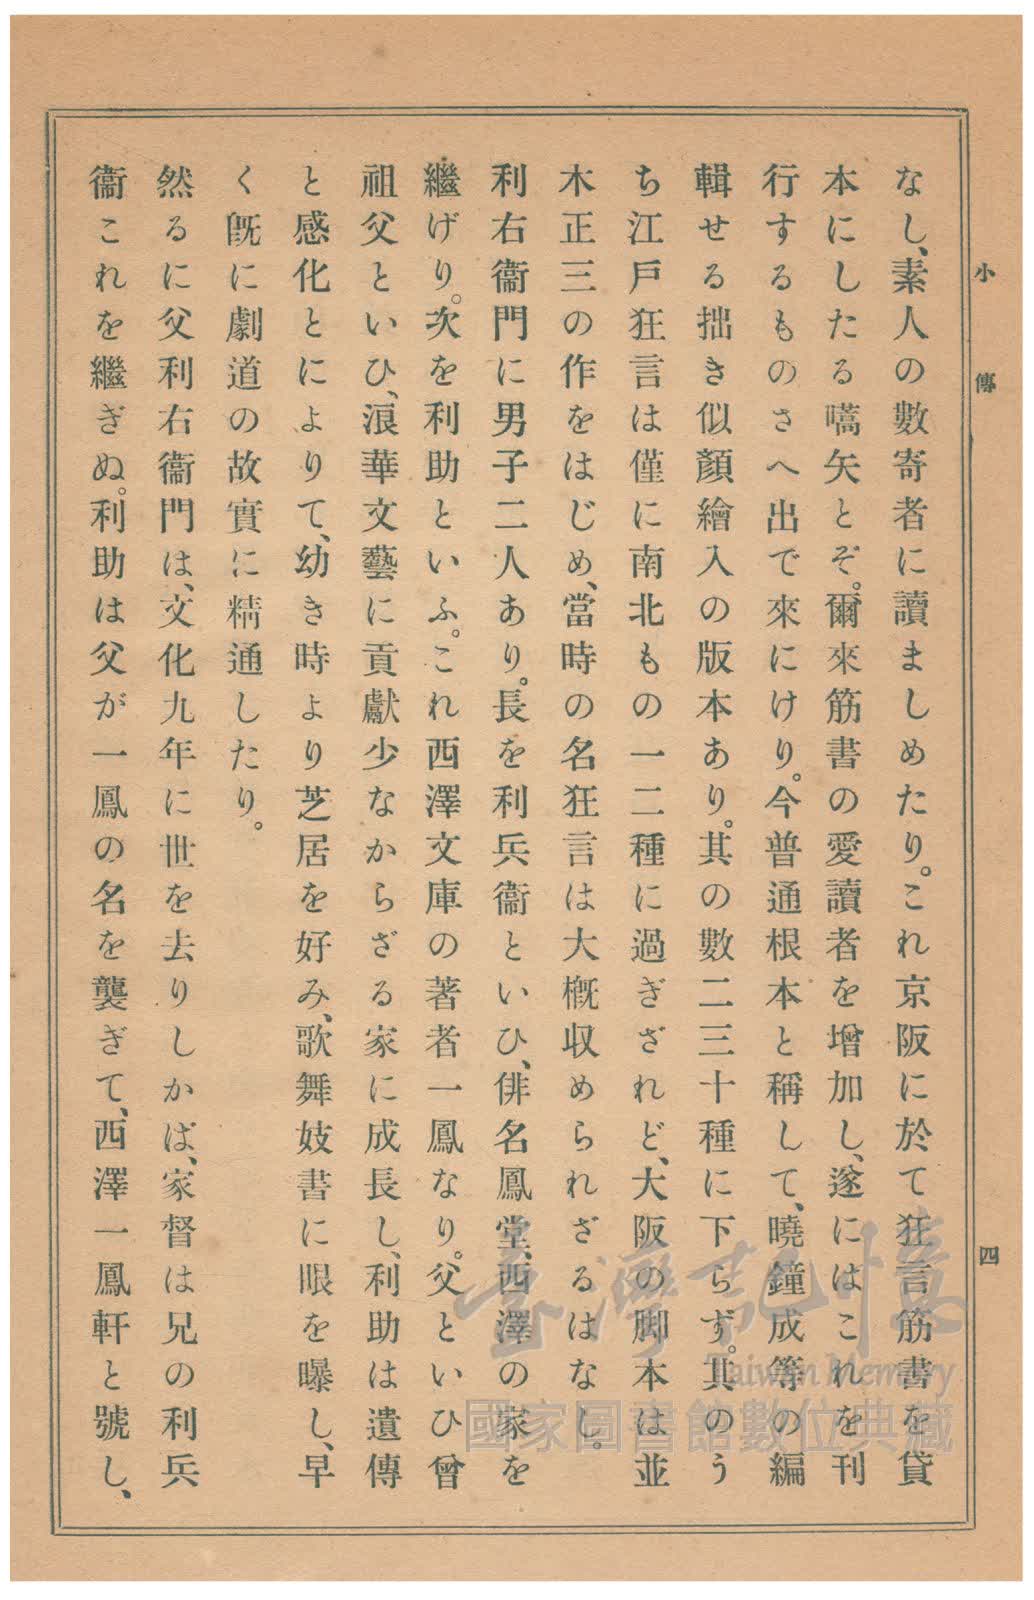 小傳
四
なし、素人の數寄者に讀ましめたり。これ京阪に於て狂言筋書を貸
本にしたる嚆矢とぞ。爾來筋書の愛讀者を增加し、遂にはこれを刊
行するものさへ出で來にけり。今普通根本と稱して、曉鐘成等の編
輯せる拙き似顏繪入の版本あり。其の數二三十種に下らず。其のう
ち江戶狂言は僅に南北もの一二種に過ぎざれど、大阪の脚本は並
木正三の作をはじめ、當時の名狂言は大槪収められざるはなし。
利右衞門に男子二人あり。長を利兵衞といひ、俳名鳳堂、西澤の家を
繼げり。次を利助といふ。これ西澤文庫の著者一鳳なり。父といひ曾
祖父といひ、浪華文藝に貢獻少なからざる家に成長し、利助は遺傳
と感化とによりて、幼き時より芝居を好み、歌舞妓書に眼を曝し、早
く旣に劇道の故實に精通したり。
然るに父利右衞門は、文化九年に世を去りしかば、家督は兄の利兵
衞これを繼ぎぬ。利助は父が一鳳の名を襲ぎて、西澤一鳳軒と號し、
臺灣記憶
Taiwan Memory
國家圖書館數位典藏